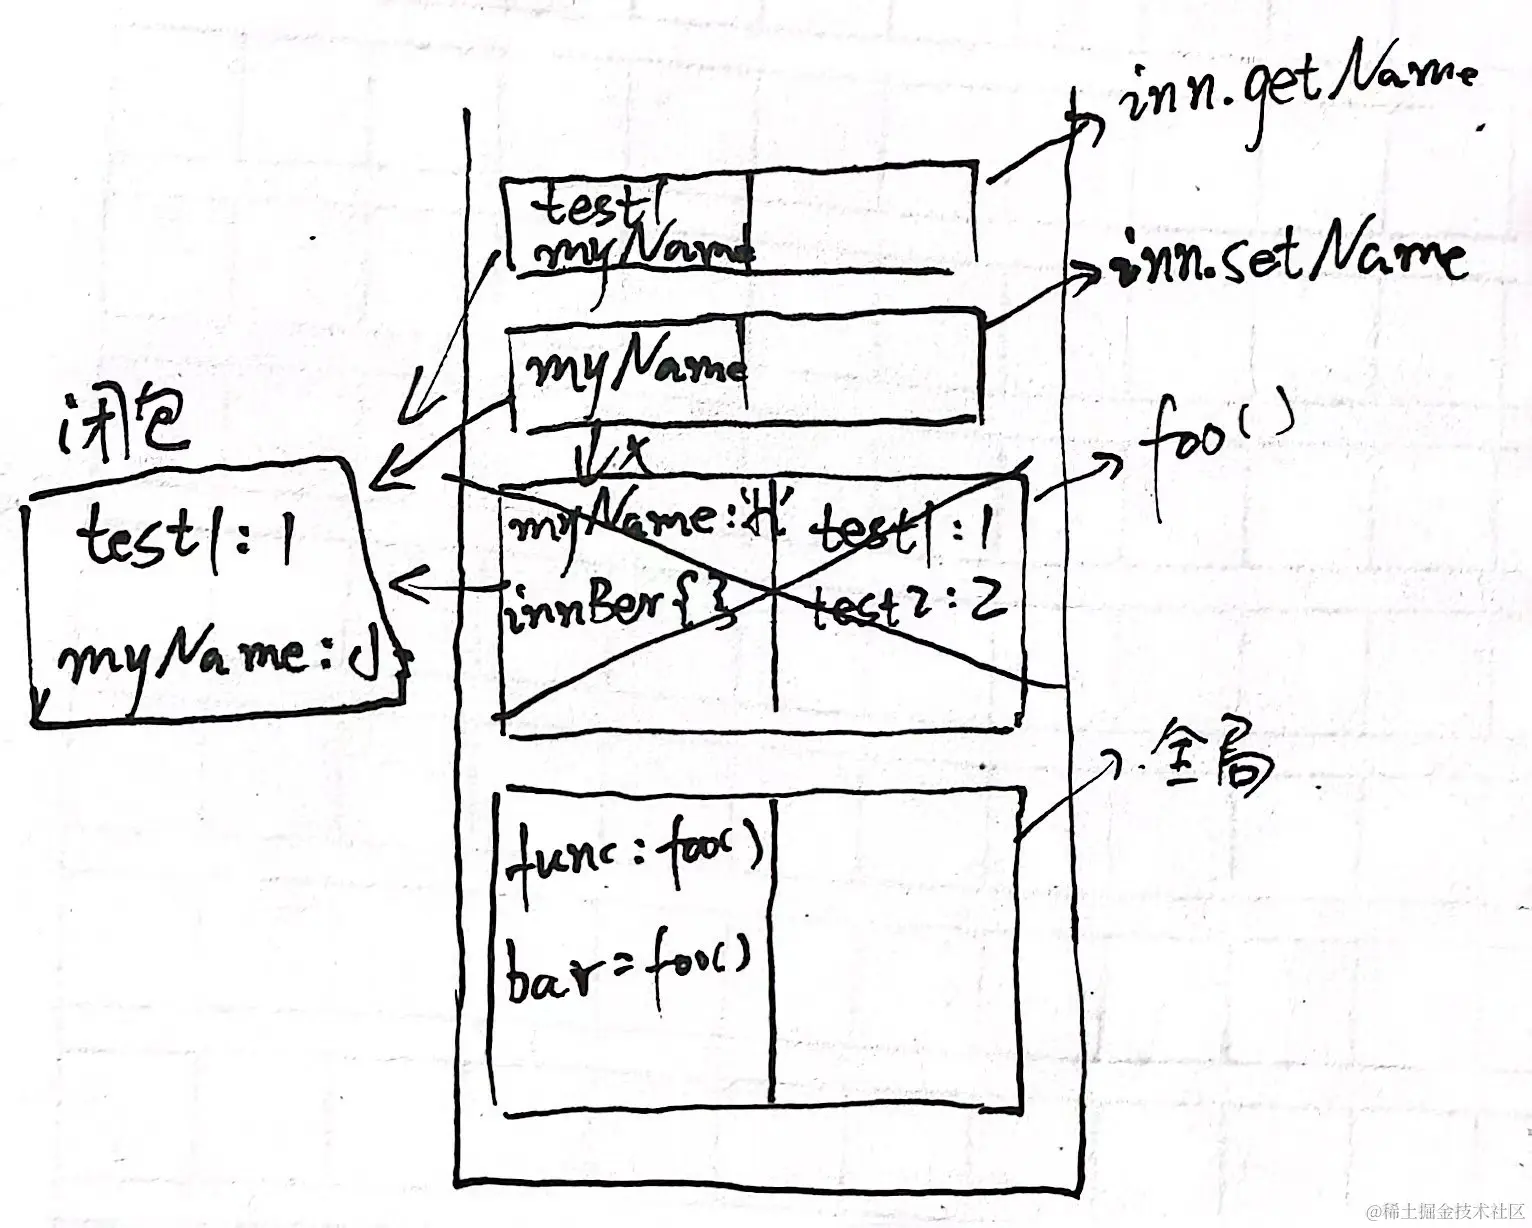 inn.getName
test1
myName
inn.setName
myName
闭包
foo()
x
myName:'H'
test1:1
innBer{}
test2:2
test1:1
myName:J
全局
func:foo()
bar=foo()
@稀土掘金技术社区